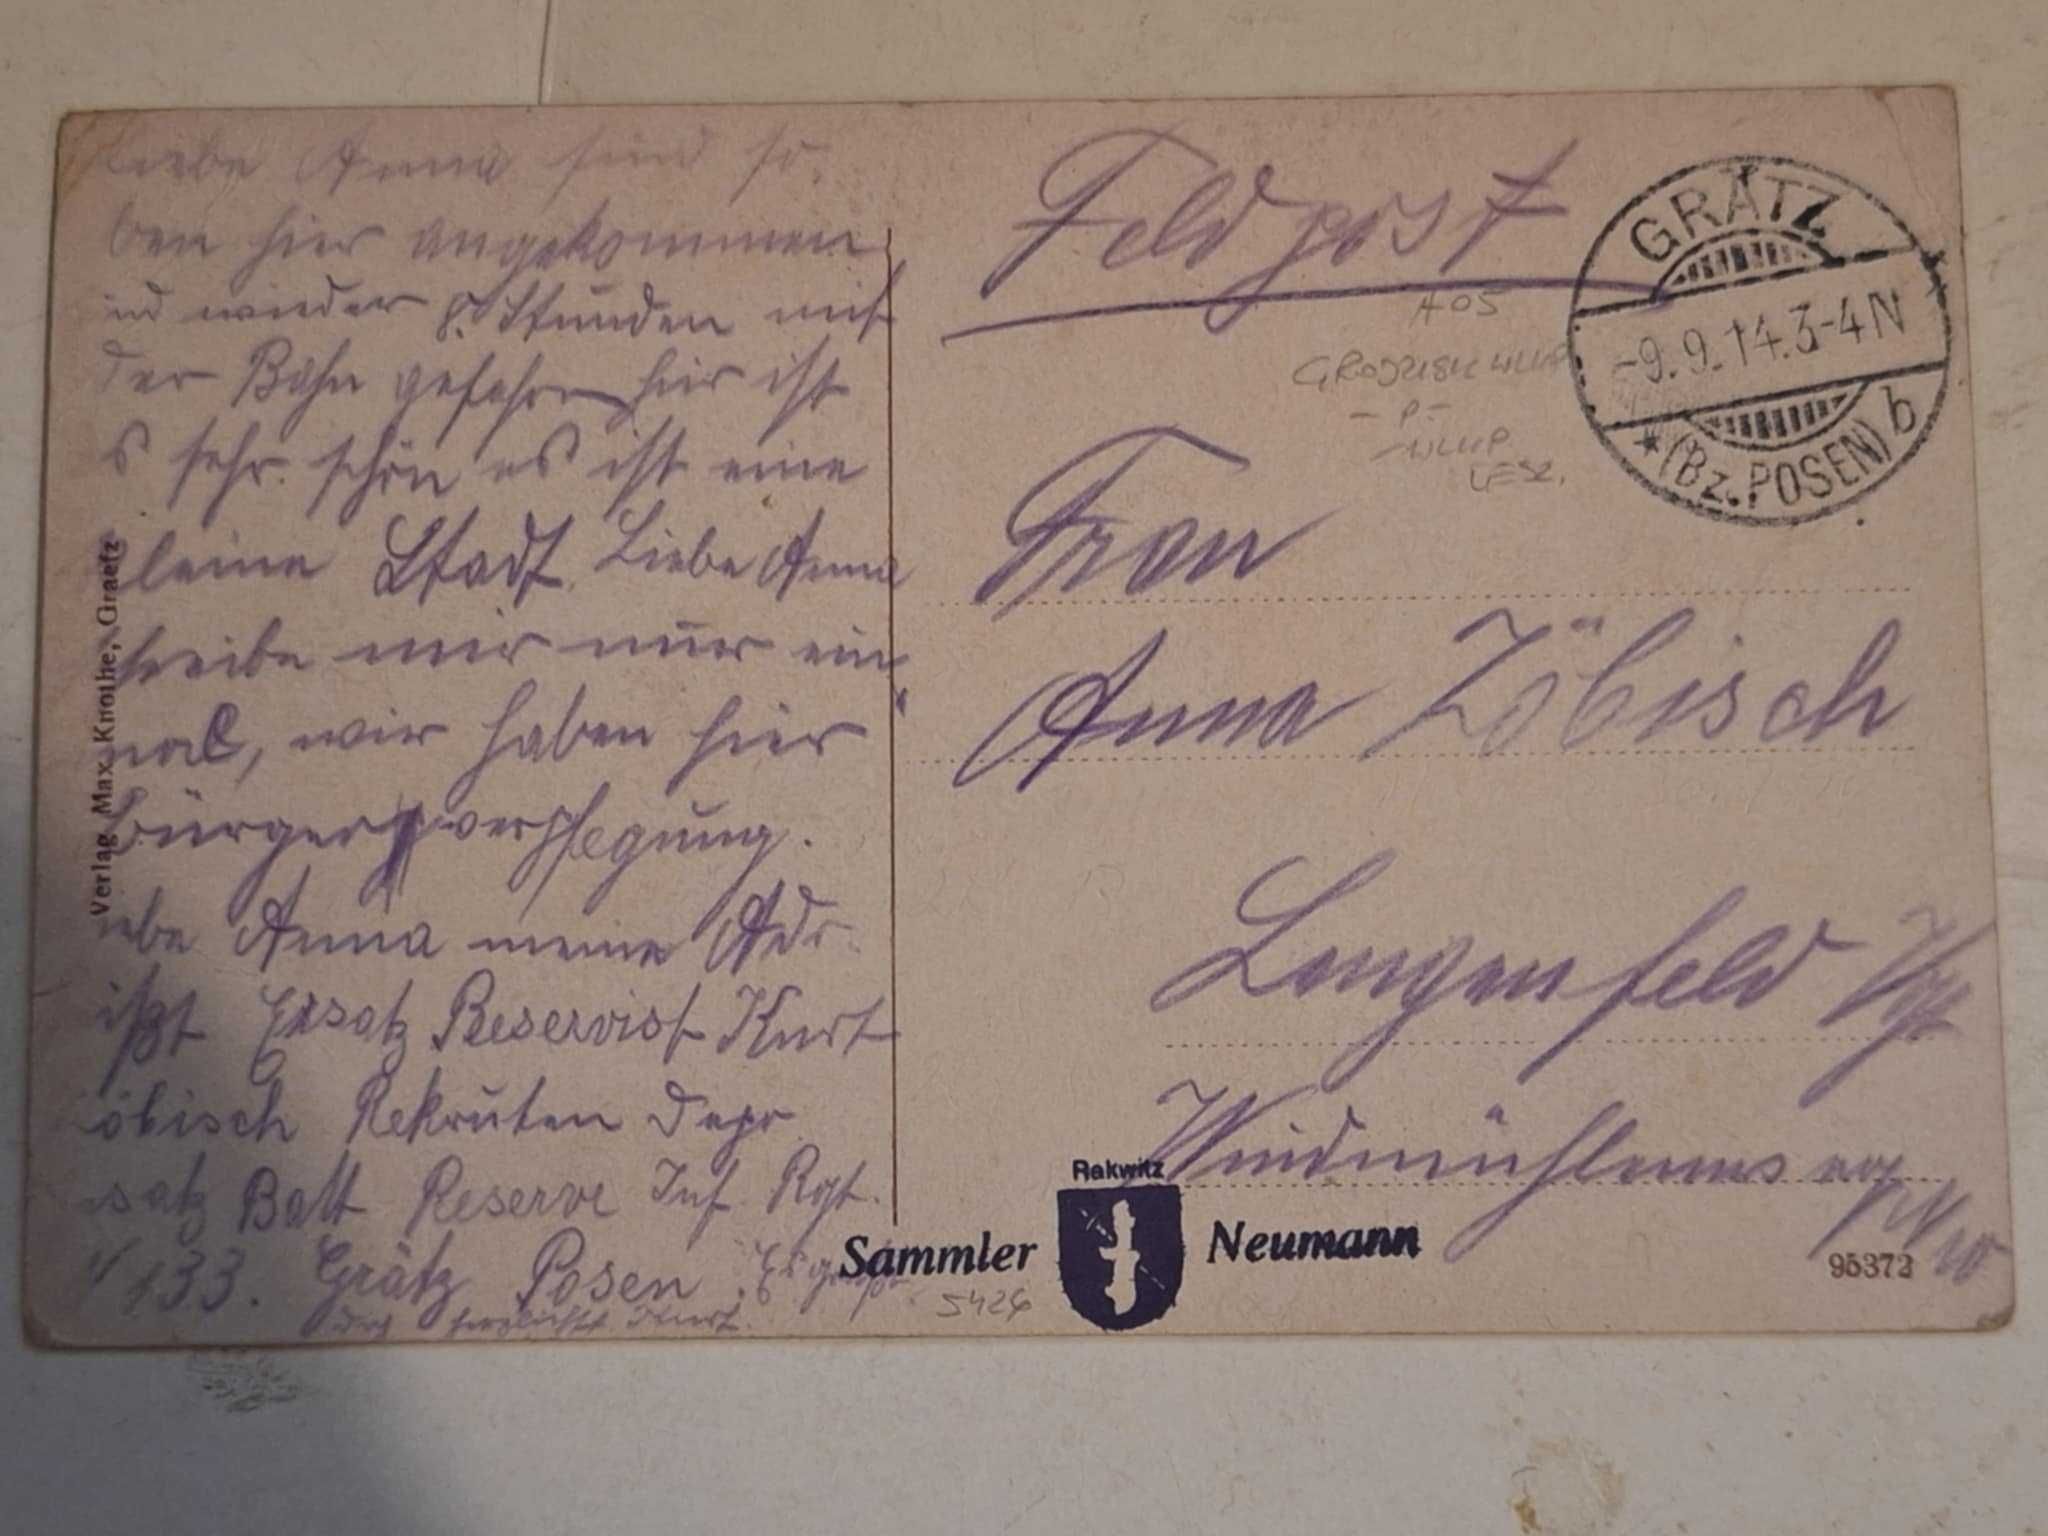 Liebe Anna sind so,
ben hier angekommen
ind wieder 8. Stunden mit
der Bahn gefahren hier ist
s sehr schön es ist eine
leine Stadt. Liebe Anna
hreibe mir nur ein
mal, wir haben hier
Bürgerverpflegung.
iebe Anna meine Adr.
ißt Ersatz Reservist Kurt
öbisch Rekruten Depo
satz Batt Reserve Inf. Rgt.
133. Grätz Posen. Es grüßt
dich herzlichst Kurt.
Verlag Max Knothe, Graetz
Feldpost
GRÄTZ
-9.9.14.3-4N
*(Bz. POSEN) b
A05
GRODZISK WLKP
- P -
- WLKP
LESZ.
Frau
Anna Zöbisch
Langenfeld Vgt
Windmühlenweg
Rakwitz
Sammler Neumann
5426
95372